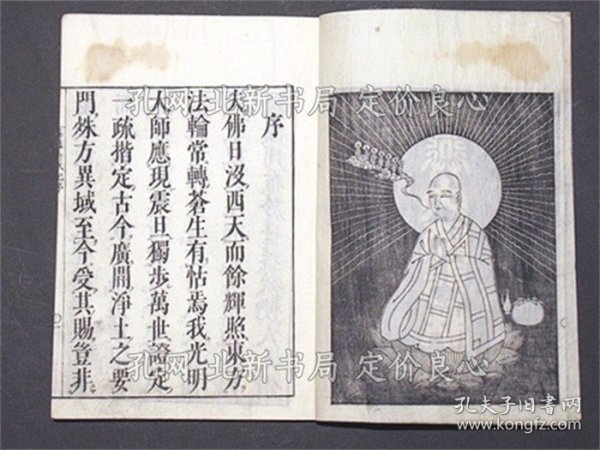 序
大佛日沒西天而餘輝照東方
法輪常轉蒼生有怙焉我光明
大師應現震旦獨步萬世證定
一疏揩定古今廣開淨土之要
門殊方異域至今受其賜豈非
孔网 北新书局 定价良心
孔网 北新书局 定价良心
孔夫子旧书网
www.kongfz.com